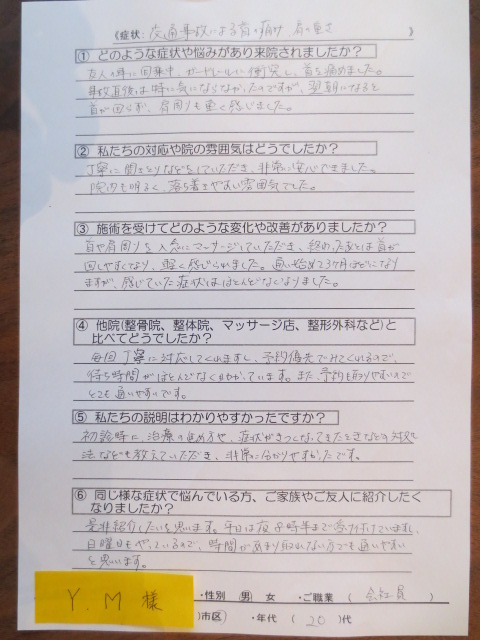 《症状: 交通事故による首の痛み 肩の重さ 》
① どのような症状や悩みがあり来院されましたか？
友人の車に同乗中、ガードレールに衝突し、首を痛めました。
事故直後は特に気にならなかったのですが、翌朝になると
首が回らず、肩周りも重く感じました。
② 私たちの対応や院の雰囲気はどうでしたか？
丁寧に聞きとりなどをしていただき、非常に安心できました。
院内も明るく、落ち着きやすい雰囲気でした。
③ 施術を受けてどのような変化や改善がありましたか？
首や肩周りを入念にマッサージしていただき、終わったあとは首が
回しやすくなり、軽く感じられました。通い始めて3ヶ月ほどになり
ますが、感じていた症状はほとんどなくなりました。
④ 他院(整骨院、整体院、マッサージ店、整形外科など)と
比べてどうでしたか？
毎回丁寧に対応してくれますし、予約優先でみてくれるので、
待ち時間がほとんどなく助かっています。また、予約も取りやすいので
とても通いやすいです。
⑤ 私たちの説明はわかりやすかったですか？
初診時に、治療の進め方や、症状がきつくなってきたときなどの対処
法なども教えていただき、非常に分かりやすかったです。
⑥ 同じ様な症状で悩んでいる方、ご家族やご友人に紹介したく
なりましたか？
是非紹介したいと思います。平日は夜8時半まで受け付けていますし、
日曜日もやっているので、時間があまり取れない方でも通いやすい
と思います。
Y.M 様
・性別 男 女 ・ご職業 ( 会社員 )
)市区( ・年代 ( 20 )代